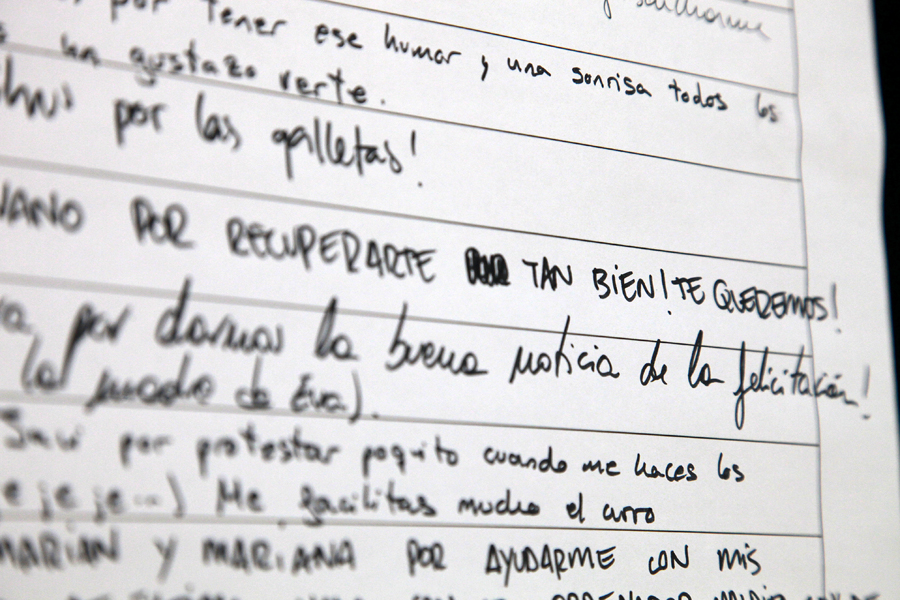 por tener ese humor y una sonrisa todos los
un gustazo verte.
por las galletas!
POR RECUPERARTE TAN BIEN! TE QUEREMOS!
por darnos la buena noticia de la felicitación!
(al madio de Eva).
por protestar poquito cuando me haces los
e je je...) Me facilitas mucho el curro
MARIAN Y MARIANA POR AYUDARME CON MIS